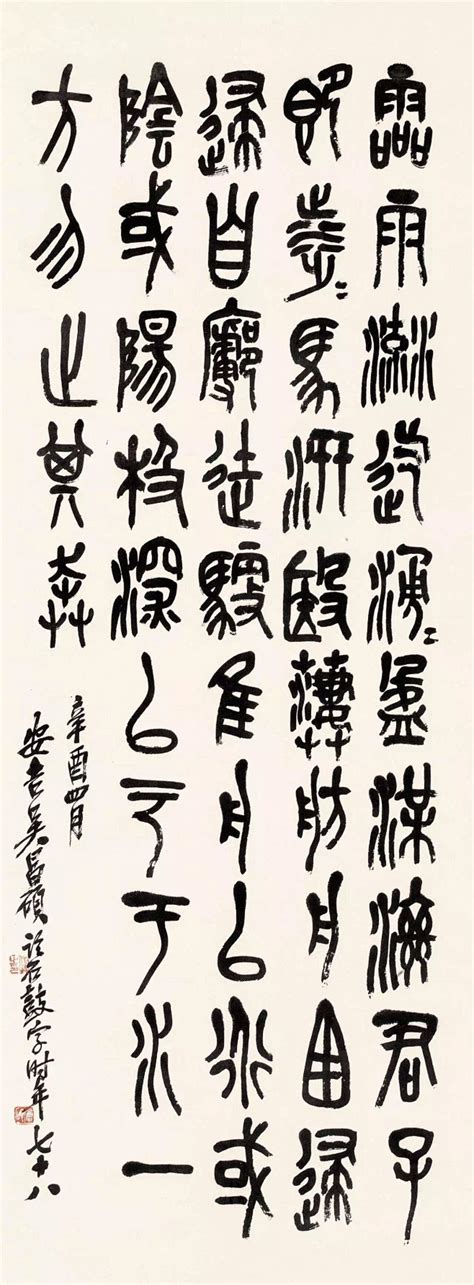 霝雨流迄滂=盈渫濟君子
即涉=馬汧殹萋舫舟囪逮
逮自廓徒馭隹舟以衍或
陰或陽极深以戶于水一
方勿止其奔
辛酉四月
安吉吳昌碩臨石鼓字時年七十八